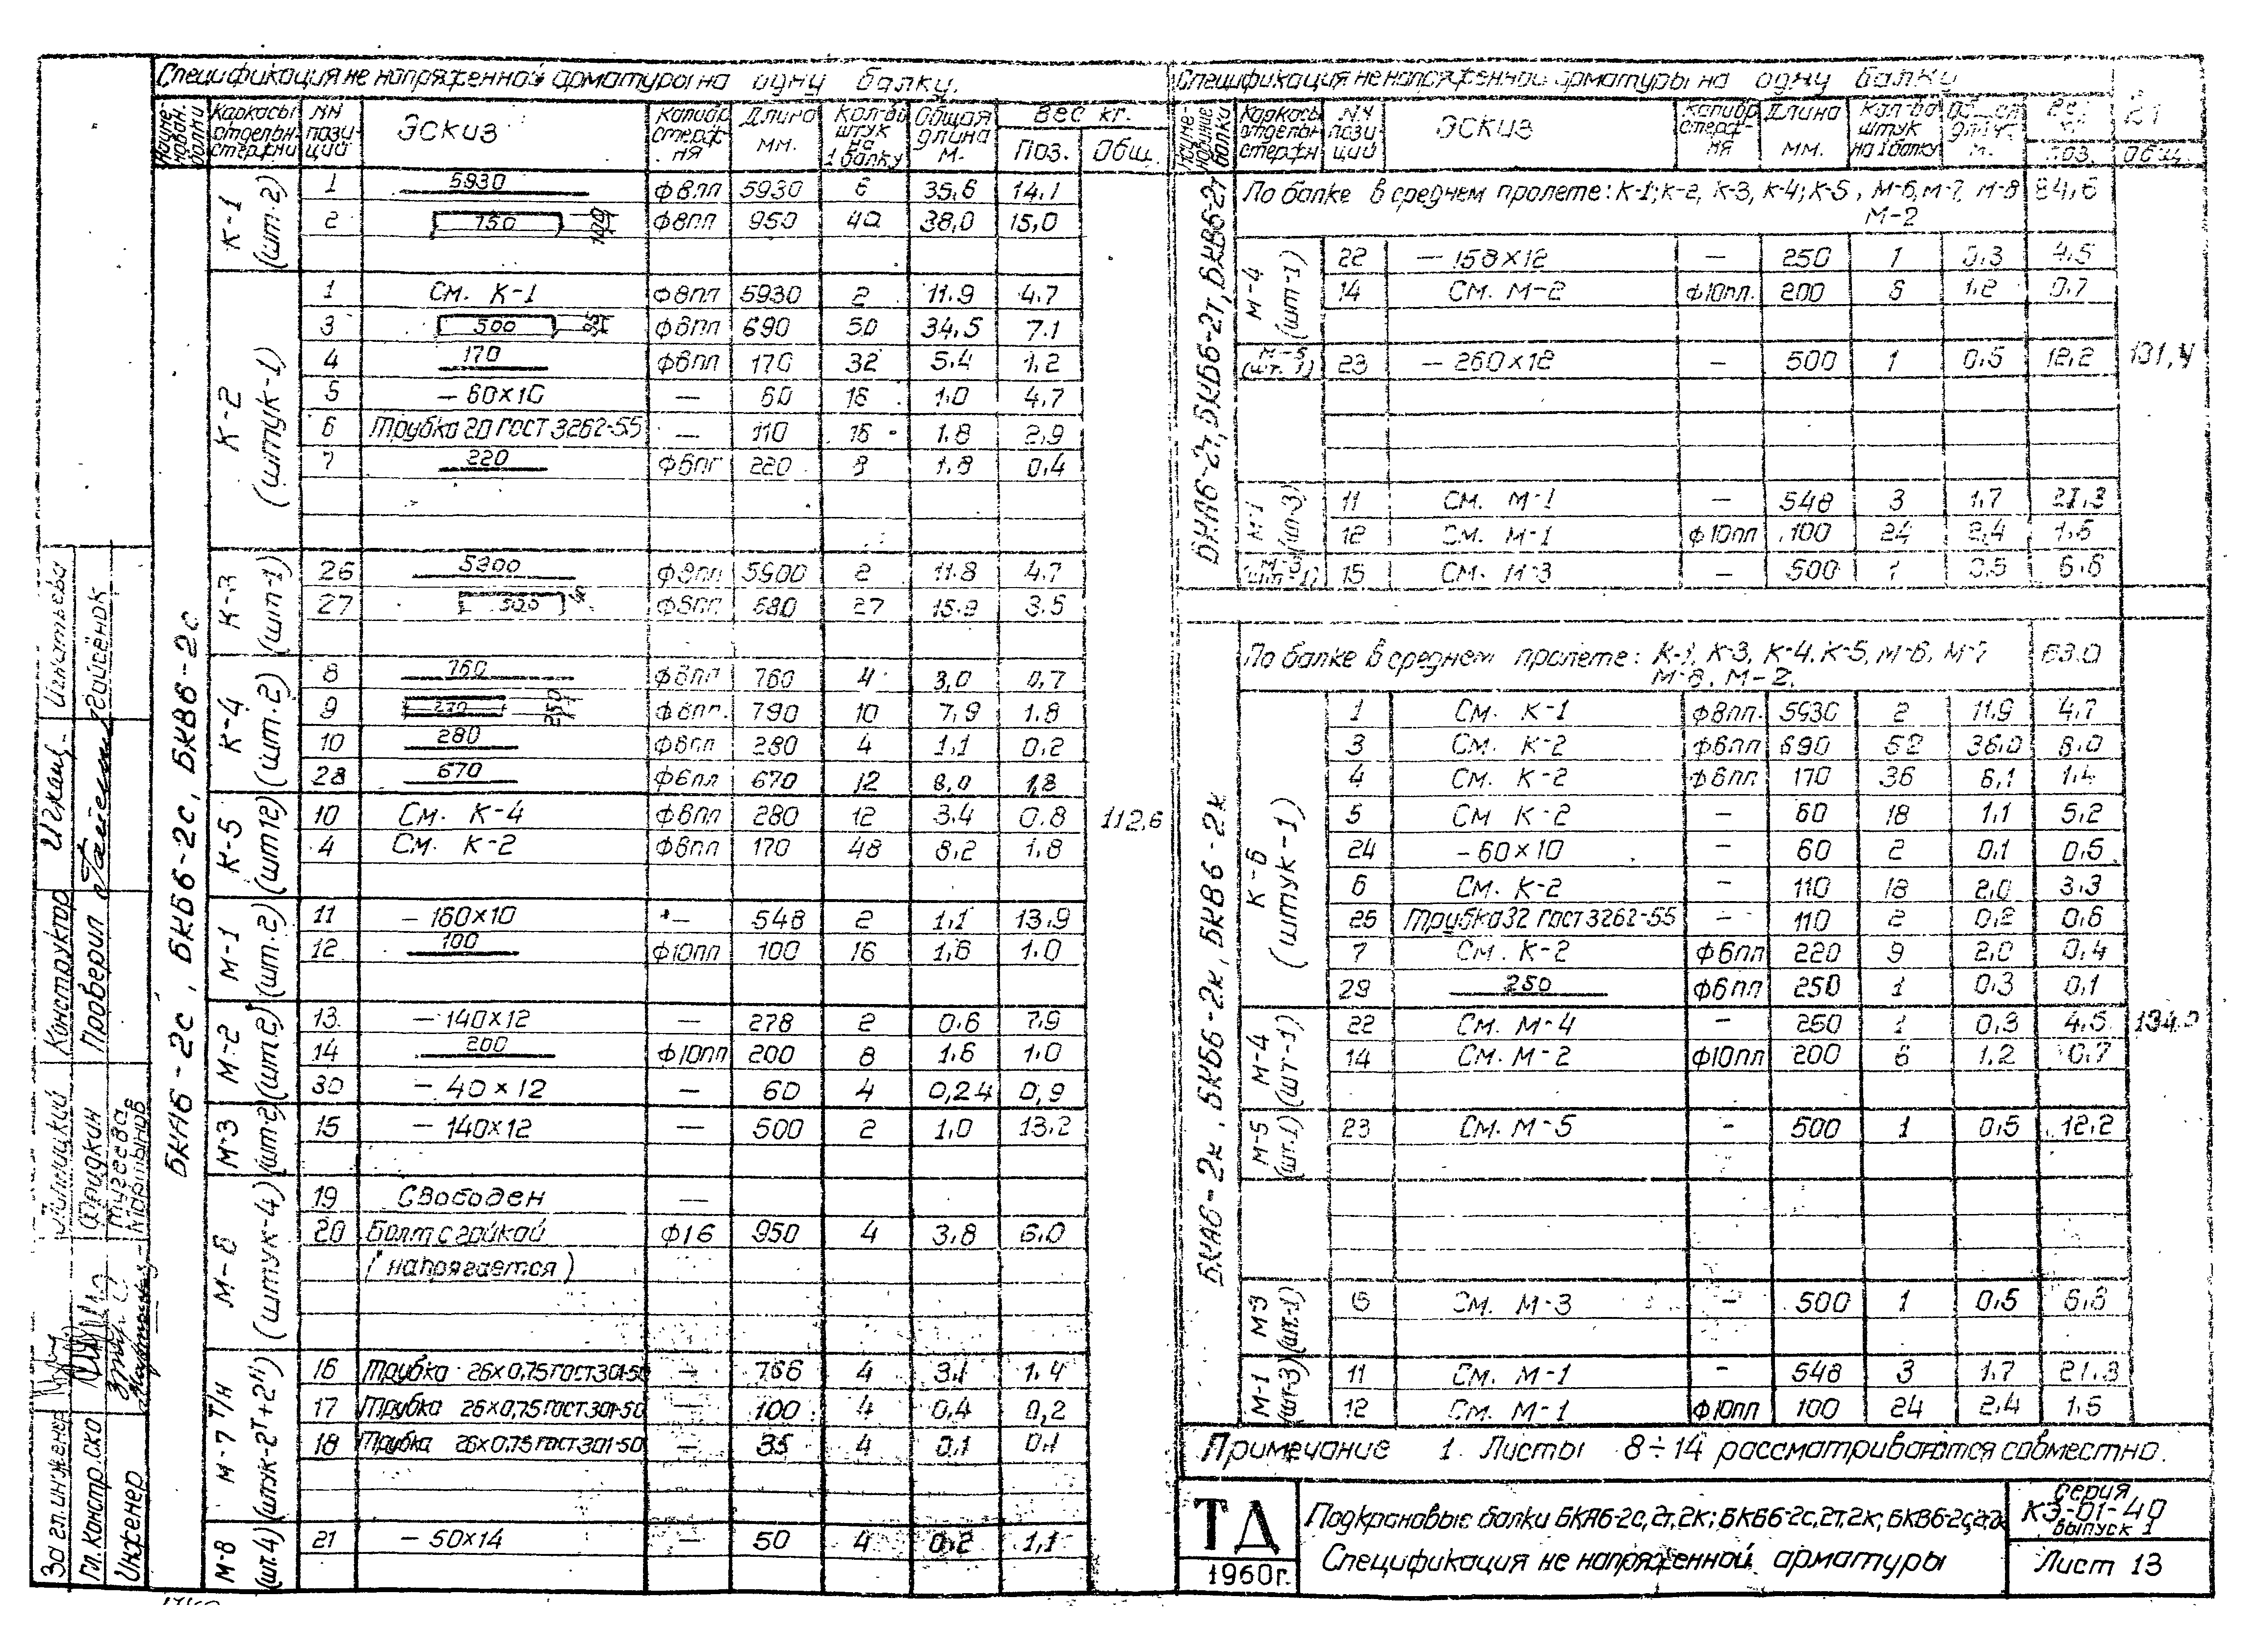 Спецификация не напряженной арматуры на одну балку.
Наименован. балки
Каркасы отдельн. стержни
NN позиций
Эскиз
Калибр стержня
Длина мм.
Кол-во штук на 1 балку
Общая длина м.
Вес кг.
Поз. Общ.
БКА6-2с, БКБ6-2с, БКВ6-2с
К-1 (шт.2)
1 5930 ф8пл 5930 6 35,6 14,1
2 750 ф8пл 950 40 38,0 15,0
К-2 (штук-1)
1 См. К-1 ф8пл 5930 2 11.9 4.7
3 500 ф6пл 690 50 34.5 7.1
4 170 ф6пл 170 32 5.4 1,2
5 – 60×10 — 60 16 1.0 4.7
6 Трубка 20 гост 3262-55 — 110 16 1.8 2,9
7 220 220 8 1.8 0,4
К-3 (шт-1)
26 5900 ф8пл 5900 2 11.8 4.7
27 ф6пл 27 3.5
К-4 (шт.2)
8 760 ф6пл 760 4 3,0 0,7
9 ф6пл. 790 10 7,9 1.8
10 280 ф6пл 280 4 1,1 0,2
28 670 ф6пл 670 12 8,0 1,8
К-5 (шт12)
10 См. К-4 ф6пл 280 12 3.4 0.8 112,6
4 См. К-2 ф6пл 170 48 8,2 1,8
М-1 (шт.2)
11 – 160×10 — 548 2 1,1 13,9
12 100 ф10пл 100 16 1,6 1,0
М-2 (шт.2)
13. – 140×12 — 278 2 0.6 7.9
14 200 ф10пл 200 8 1.6 1.0
30 – 40×12 — 60 4 0,24 0,9
М-3 (шт-2)
15 – 140×12 — 500 2 1,0 13,2
М-6 (штук-4)
19 Свободен —
20 Болт с гайкой ф16 950 4 3,8 6.0
(напрягается)
М-7 т/н (штук-2т+2н)
16 Трубка 26×0,75 гост 301-50 — 766 4 3,1 1,4
17 Трубка 26×0,75 гост 301-50 — 100 4 0,4 0,2
18 Трубка 26×0.75 гост 301-50 — 35 4 0,1 0,1
М-8 (шт.4)
21 – 50×14 — 50 4 0,2 1,1
Спецификация не напряженной арматуры на одну балку
Каркасы отдельн стержн
NN позиций
Эскиз
Калибр стержня
Длина мм.
Кол-во штук на 1 балку
поз. общ.
БКА6-2т, БКБ6-2т, БКВ6-2т
По балке в среднем пролете: К-1; к-2, К-3, К-4; К-5, М-6, м-7, М-8 84,6
М-2
М-4 (шт-1)
22 – 158×12 — 250 1 0,3 4,5
14 См. М-2 ф10пл. 200 6 1,2 0,7
М-5 (шт. 1)
23 – 260×12 — 500 1 0,5 12,2 131,4
М-1 (шт-3)
11 См. М-1 — 548 3 1,7 21,3
12 См. М-1 ф10пл 100 24 2,4 1,5
М-3 (шт-1)
15 См. М-3 — 500 1 0,5 6,6
БКА6-2к, БКБ6-2к, БКВ6-2к
По балке в среднем пролете: К-1, К-3, К-4. К-5, М-6, М-7 63.0
М-8, М-2.
К-6 (штук-1)
1 См. К-1 ф8пл. 5930 2 11,9 4.7
3 См. К-2 ф6пл 690 52 36,0 8.0
4 См. К-2 ф6пл 170 36 6,1 1.4
5 См К-2 — 60 18 1,1 5,2
24 – 60×10 — 60 2 0,1 0,5
6 См. К-2 — 110 18 2,0 3,3
25 Трубка 32 гост 3262-55 — 110 2 0,2 0,6
7 См. К-2 ф6пл 220 9 2,0 0,4
29 250 ф6пл 250 1 0,3 0,1
М-4 (шт-1)
22 См. М-4 — 250 1 0,3 4,5 134,0
14 См. М-2 ф10пл 200 6 1,2 0,7
М-5 (шт.1)
23 См. М-5 — 500 1 0,5 12,2
М-3 (шт.-1)
См. М-3 — 500 1 0,5 6,6
М-1 (шт-3)
11 См. М-1 — 548 3 1.7 21.3
12 См. М-1 ф10пл 100 24 2,4 1.5
Примечание 1. Листы 8÷14 рассматриваются совместно.
ТД
1960г.
Подкрановые балки БКА6-2с,2т,2к; БКБ6-2с,2т,2к; БКВ6-2с,2т,2к
Спецификация не напряженной арматуры
серия
КЭ-01-40
выпуск 1
Лист 13
За гл. инженер
Гл. констр. ско
Инженер
Фридкин
Мартынов
Конструктор
Проверил
Игнатьева